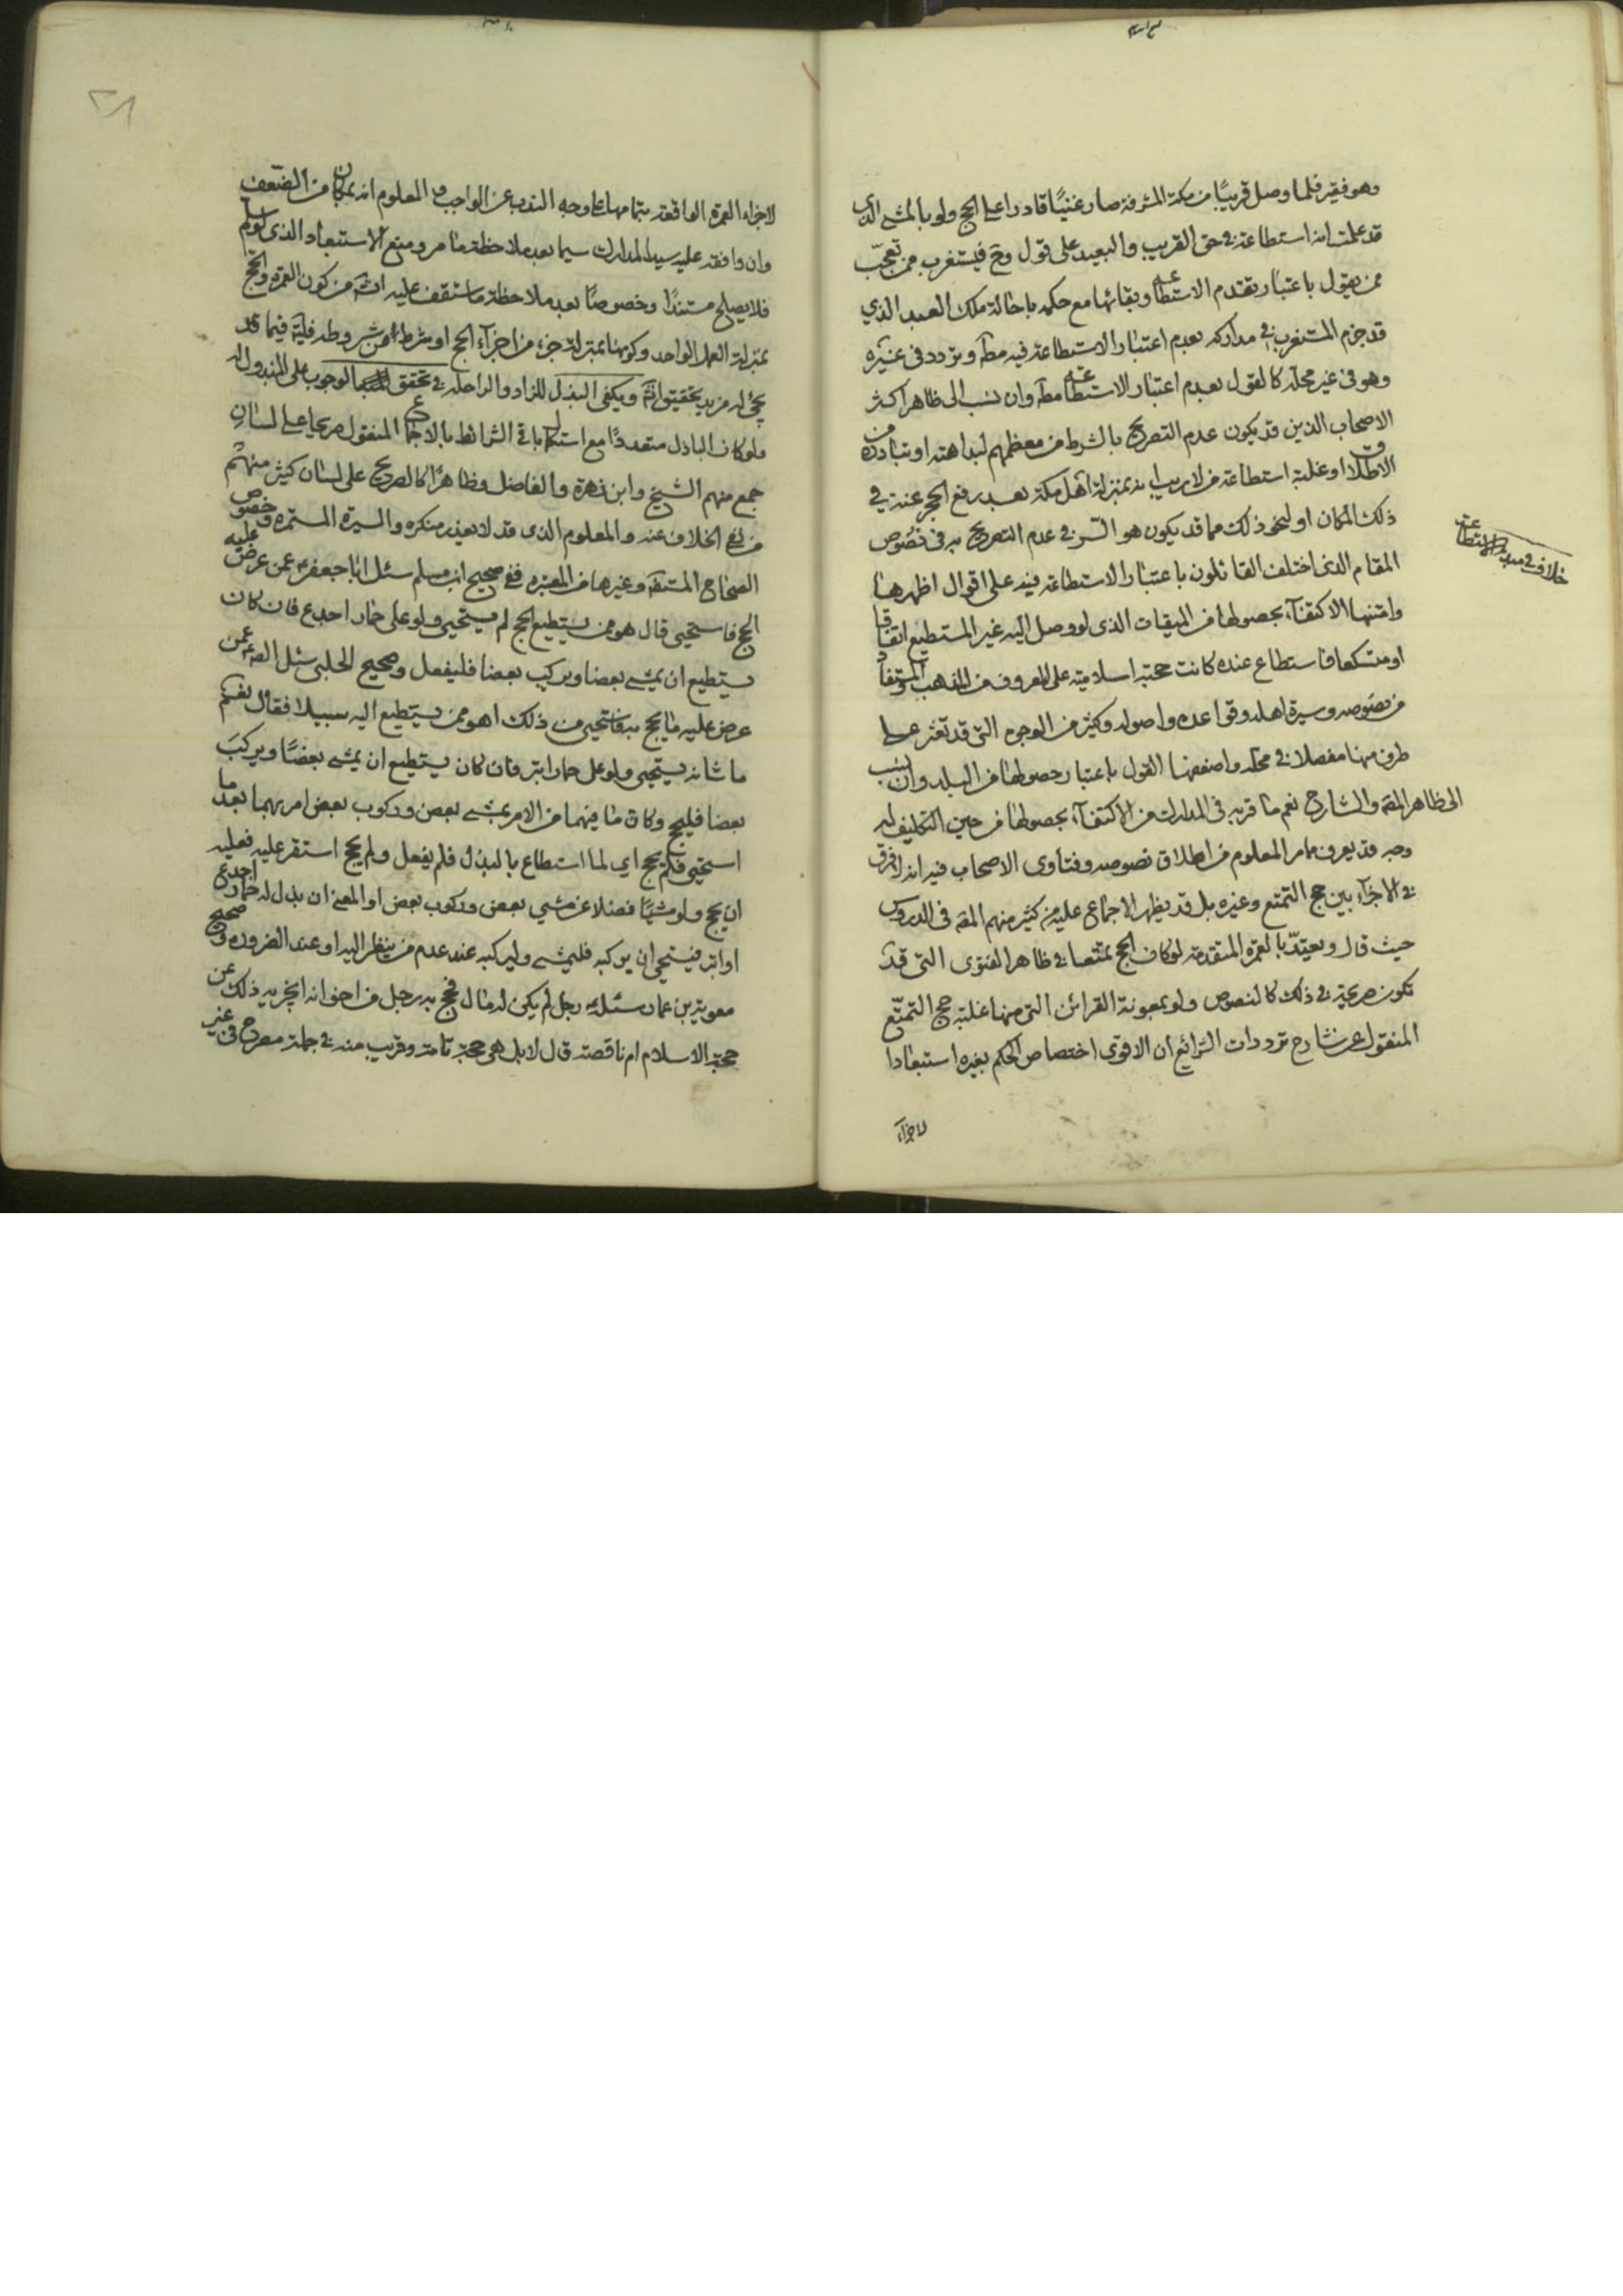 وهو فقير فلما وصل قريبًا من مكة المشرفة صار غنيًا قادرا على الحج ولو بالمشي الذي
قد علمت انه استطاعة في حق القريب والبعيد على قول وح فيستغرب ممن تعجب
ممن يقول باعتبار تقدم الاستطاعة وبقائها مع حكمه باحالة ملك العبد الذي
قد جزم المستغرب في مداركه بعدم اعتبار الاستطاعة فيه مطه وتردد في غيره
وهو في غير محله كالقول بعدم اعتبار الاستطاعة مطه وان نسب الى ظاهر اكثر
الاصحاب الذين قد يكون عدم التصريح بالشرط من معظمهم لبداهته او تبادره من
الاطلاق او غلبة استطاعة من لا ريب انه بمنزلة اهل مكة بعد رفع الحجر عنه في
ذلك المكان او لنحو ذلك مما قد يكون هو السر في عدم التصريح به في نصوص
المقام الذي اختلف القائلون باعتبار الاستطاعة فيه على اقوال اظهرها
وامتنها الاكتفآء بحصولها من الميقات الذي لو وصل اليه غير المستطيع اتفاقا
او متسكعا فاستطاع عنده كانت حجته اسلامية على المعروف من المذهب والمستفاد
من نصوصه وسيرة اهله وقواعده واصوله وكثير من الوجوه التي قد تعثر على
طرف منها مفصلا في محله واضعفها القول باعتبار حصولها من البلد وان نسب
الى ظاهر المصه والشارح نعم ما قربه في المدارك من الاكتفآء بحصولها من حين التكليف له
وجه قد يعرف مما مر المعلوم من اطلاق نصوصه وفتاوى الاصحاب فيه انه لا فرق
في الاجزآء بين حج التمتع وغيره بل قد يظهر الاجماع عليه من كثير منهم المصه في الدروس
حيث قال ويعتدّ بالعمرة المتقدمة لو كان الحج تمتعا في ظاهر الفتوى التي قد
تكون صريحة في ذلك كالنصوص ولو بمعونة القرائن التي منها غلبة حج التمتّع
المنقول عن شارح ترددات الشرائع ان الاقوى اختصاص الحكم بغيره استبعادا
لاجزآء
خلاف في مبدء الاستطاعة
لاجزاء العمرة الواقعة بتمامها على وجه الندب عن الواجب و المعلوم انه بمكان من الضعف
وان وافقه عليه سيد المدارك سيما بعد ملاحظة ما مر ومنع الاستبعاد الذي لو سلم
فلا يصلح مستندًا وخصوصًا بعد ملاحظة ما ستقف عليه انشه من كون العمرة والحج
بمنزلة العمل الواحد وكونها بمنزلة جزء من اجزآء الحج او شرط من شروطه فليته فيما قد
يجئ له مزيد تحقيق انشه ويكفى البذل للزاد والراحلة في تحقق الوجوب على المبذول له
ولو كان الباذل متعددًا مع استكمال باقي الشرائط بالاجماع المنقول صريحا على لسان
جمع منهم الشيخ وابن زهرة والفاضل وظاهرًا كالصريح على لسان كثير منهم ثم
من نفي الخلاف عنه والمعلوم الذي قد لا يعذر منكره والسيرة المستمرة وخصوص
الصحاح المستفيضه وغيرها من المعتبره ففي صحيح ابن مسلم سئل ابا جعفر ع عمن عرض عليه
الحج فاستحيى قال هو ممن يستطيع الحج لم يستحيى ولو على حمار اجدع فان كان
يستطيع ان يمشى بعضا ويركب بعضا فليفعل وصحيح الحلبي سئل الصه ع عمن
عرض عليه ما يحج به فاستحيى من ذلك اهو ممن يستطيع اليه سبيلا فقال نعم
ما شانه يستحيى ولو على حمار ابتر فان كان يستطيع ان يمشى بعضًا ويركب
بعضا فليحج وكان ما فيهما من الامر بمشى بعض وركوب بعض امر بهما بعد ما
استحيى فلم يحج اي لما استطاع بالبذل فلم يفعل ولم يحج استقر عليه فعليه
ان يحج ولو مشيًا فضلا عن مشي بعض وركوب بعض او المعنى ان بذل له حمار اجدع
او ابتر فيستحي ان يركبه فليمشى وليركبه عند عدم من ينظر اليه او عند الضروره وصحيح
معوية بن عمار سئله رجل لم يكن له مال فحج به رجل من اخوانه ايجزيه ذلك عن
حجة الاسلام ام ناقصة قال لا بل هي حجة تامة وقريب منه في جملة مصرح في غير